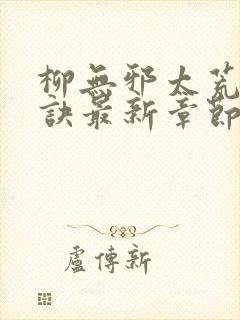 柳無邪太荒
訣最新章節
盧傳新